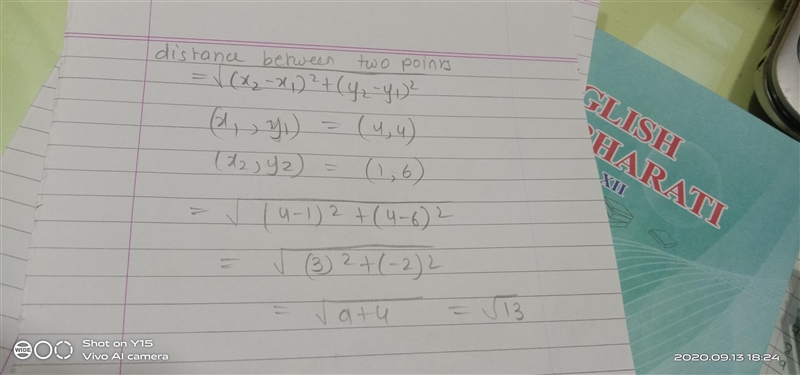 distance between two points
= √(x₂-x₁)²+(y₂-y₁)²
(x₁, y₁) = (4,4)
(x₂, y₂) = (1,6)
= √(4-1)²+(4-6)²
= √(3)²+(-2)²
= √9+4 = √13
GLISH
BHARATI
XII
Shot on Y15
Vivo AI camera
2020.09.13 18:24